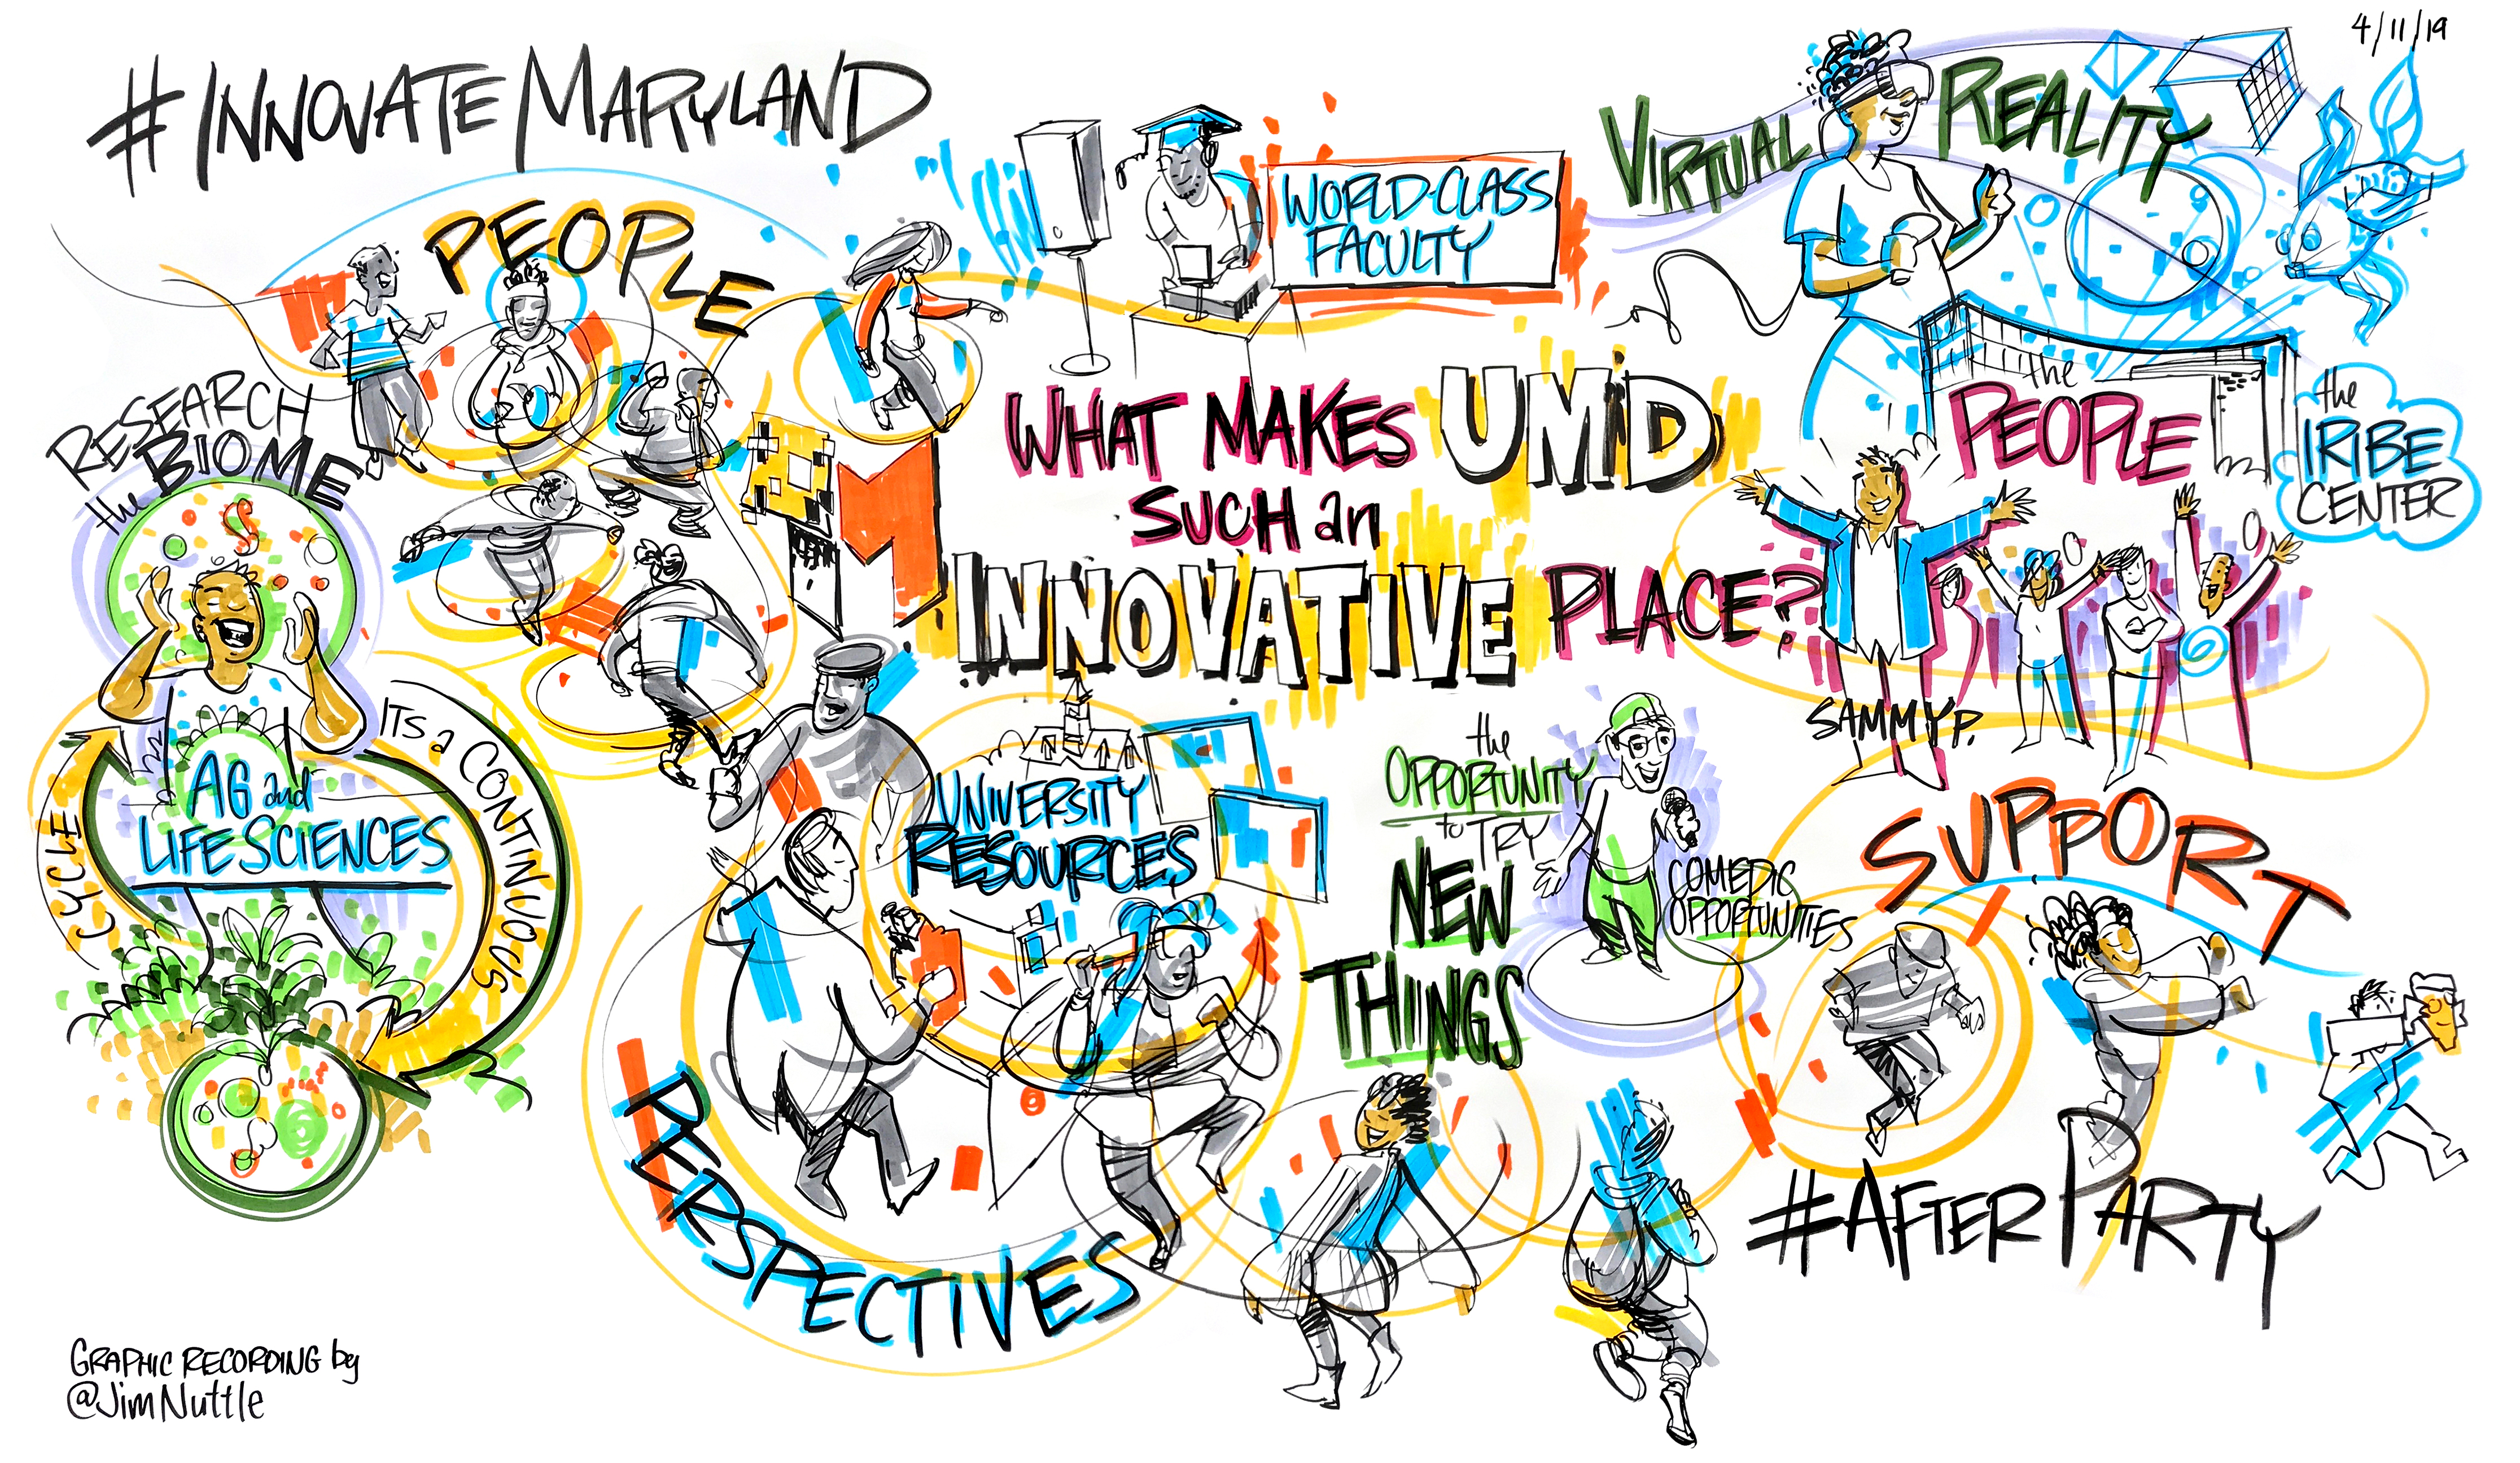 4/11/19
#INNOVATE MARYLAND
PEOPLE
WORLD-CLASS
FACULTY
VIRTUAL REALITY
RESEARCH
the BIOME
WHAT MAKES UMD
SUCH an
INNOVATIVE PLACE?
M
the
PEOPLE
the
IRIBE
CENTER
SAMMY P.
ITS a CONTINUOUS
CYCLE
AG and
LIFE SCIENCES
UNIVERSITY
RESOURCES
the
OPPORTUNITY
to TRY
NEW
THINGS
COMEDIC
OPPORTUNITIES
SUPPORT
PERSPECTIVES
#AFTER PARTY
GRAPHIC RECORDING by
@JimNuttle